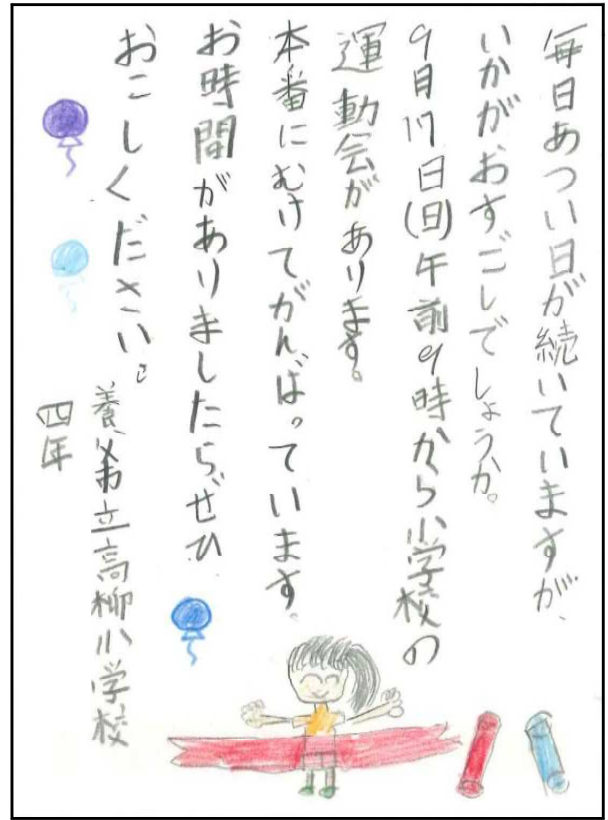 毎日あつい日が続いていますが、
いかがおすごしでしょうか。
9月17日(日)午前9時から小学校の
運動会があります。
本番にむけてがんばっています。
お時間がありましたら、ぜひ
おこしください。
養父市立高柳小学校
四年